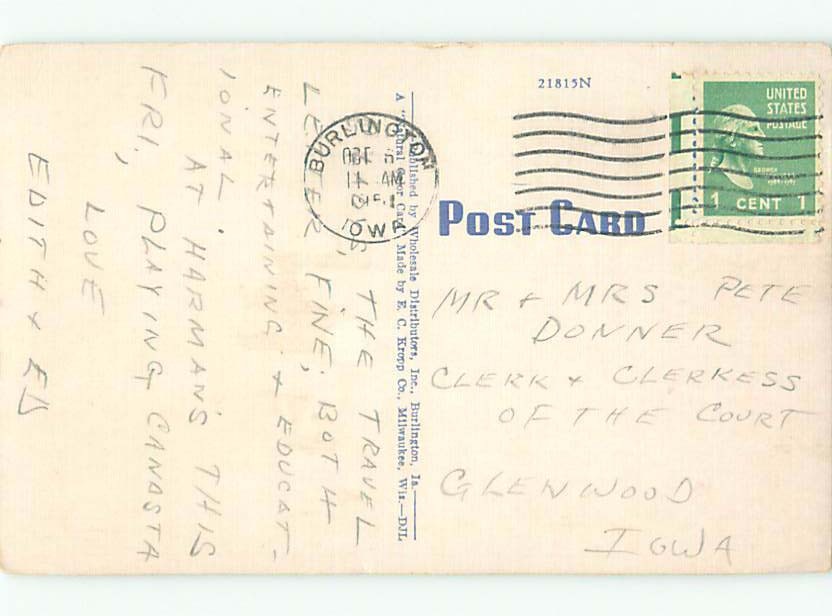 21815N
UNITED
STATES
POSTAGE
GEORGE
1 CENT 1
BURLINGTON
11 AM
IOWA
POST CARD
Published by Wholesale Distributors, Inc., Burlington, Ia.
A "Natural Color Card" Made by E. C. Kropp Co., Milwaukee, Wis.—DJL
THE TRAVEL
LETTER FINE; BOTH
ENTERTAINING & EDUCAT-
IONAL.
AT HARMAN'S THIS
FRI, PLAYING CANASTA
LOVE
EDITH & ED
MR & MRS PETE
DONNER
CLERK & CLERKESS
OF THE COURT
GLENWOOD
IOWA